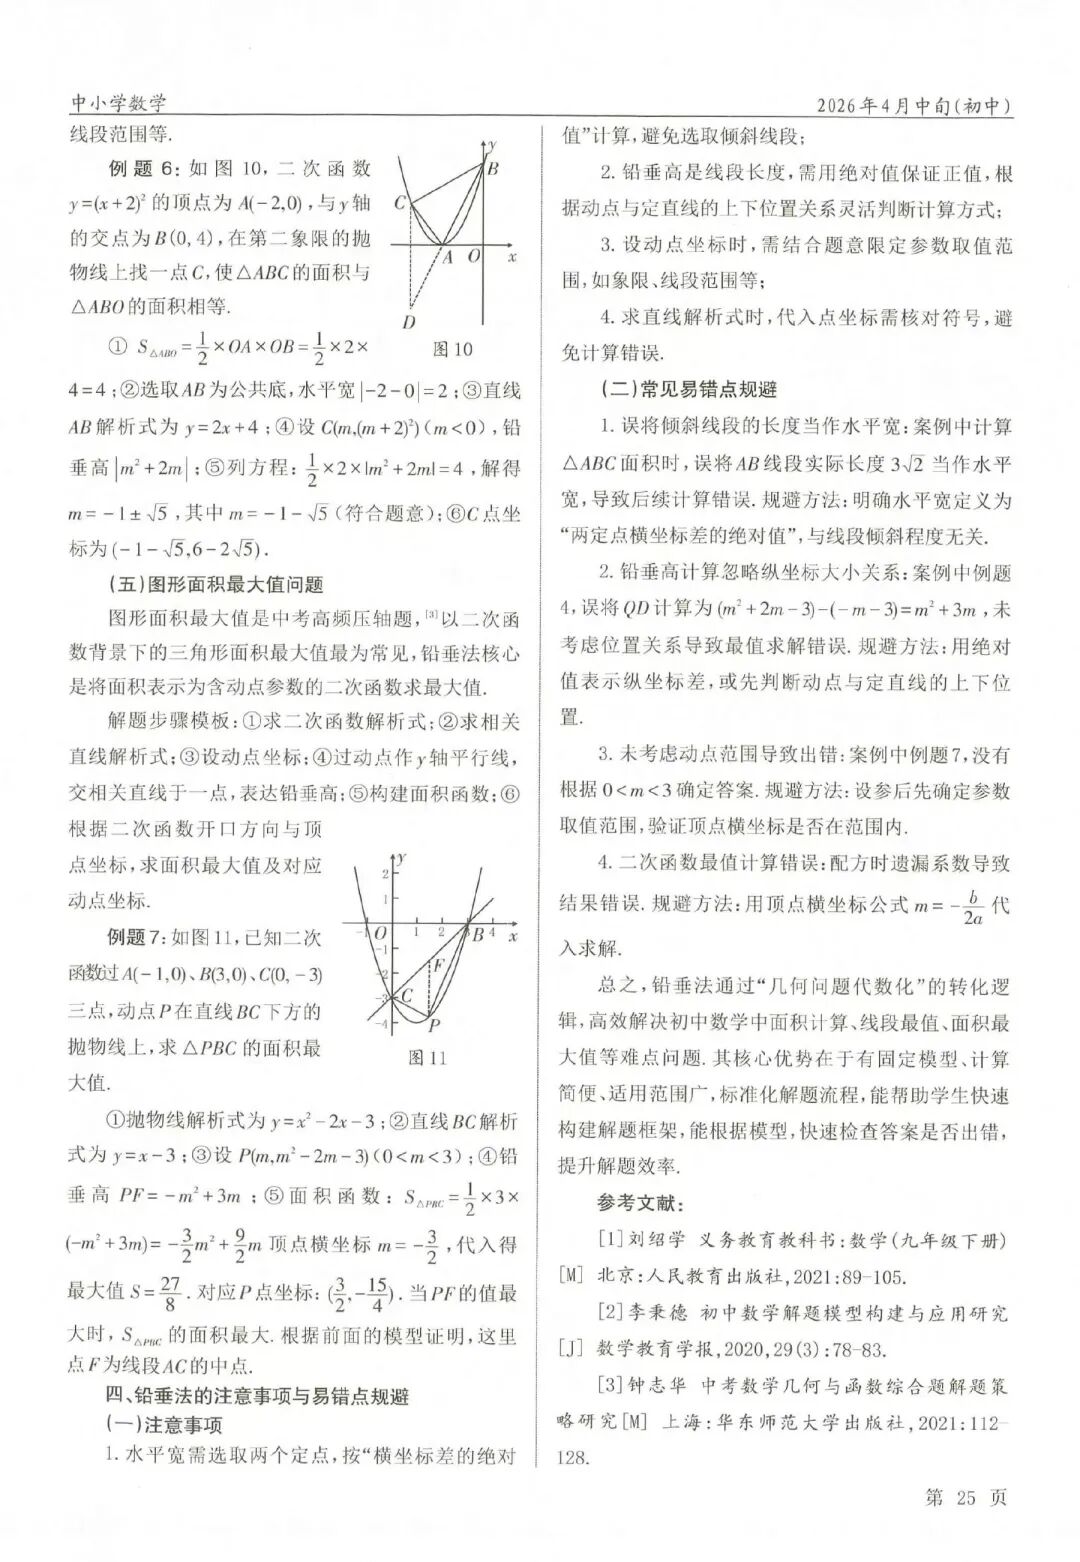 中小学数学
2026年4月中旬(初中)
线段范围等.
例题6:如图10,二次函数
y=(x+2)²的顶点为A(-2,0),与y轴
的交点为B(0,4),在第二象限的抛
物线上找一点C,使△ABC的面积与
△ABO的面积相等.
y
B
C
A
O
x
D
图10
① S△ABO=1/2×OA×OB=1/2×2×
4=4;②选取AB为公共底,水平宽|-2-0|=2;③直线
AB解析式为y=2x+4;④设C(m,(m+2)²)(m<0),铅
垂高|m²+2m|;⑤列方程:1/2×2×|m²+2m|=4,解得
m=-1±√5,其中m=-1-√5(符合题意);⑥C点坐
标为(-1-√5,6-2√5).
(五)图形面积最大值问题
图形面积最大值是中考高频压轴题,[3]以二次函
数背景下的三角形面积最大值最为常见,铅垂法核心
是将面积表示为含动点参数的二次函数求最大值.
解题步骤模板:①求二次函数解析式;②求相关
直线解析式;③设动点坐标;④过动点作y轴平行线,
交相关直线于一点,表达铅垂高;⑤构建面积函数;⑥
根据二次函数开口方向与顶
点坐标,求面积最大值及对应
动点坐标.
例题7:如图11,已知二次
函数过A(-1,0)、B(3,0)、C(0,-3)
三点,动点P在直线BC下方的
抛物线上,求△PBC的面积最
大值.
y
2
1
-1 O 1 2 3 B 4 x
-1
-2
F
-3
C
-4
P
图11
①抛物线解析式为y=x²-2x-3;②直线BC解析
式为y=x-3;③设P(m,m²-2m-3)(0<m<3);④铅
垂高PF=-m²+3m;⑤面积函数:S△PBC=1/2×3×
(-m²+3m)=-3/2m²+9/2m 顶点横坐标m=-3/2,代入得
最大值S=27/8.对应P点坐标:(3/2,-15/4).当PF的值最
大时,S△PBC的面积最大.根据前面的模型证明,这里
点F为线段AC的中点.
四、铅垂法的注意事项与易错点规避
(一)注意事项
1.水平宽需选取两个定点,按“横坐标差的绝对
值”计算,避免选取倾斜线段;
2.铅垂高是线段长度,需用绝对值保证正值,根
据动点与定直线的上下位置关系灵活判断计算方式;
3.设动点坐标时,需结合题意限定参数取值范
围,如象限、线段范围等;
4.求直线解析式时,代入点坐标需核对符号,避
免计算错误.
(二)常见易错点规避
1.误将倾斜线段的长度当作水平宽:案例中计算
△ABC面积时,误将AB线段实际长度3√2当作水平
宽,导致后续计算错误.规避方法:明确水平宽定义为
“两定点横坐标差的绝对值”,与线段倾斜程度无关.
2.铅垂高计算忽略纵坐标大小关系:案例中例题
4,误将QD计算为(m²+2m-3)-(-m-3)=m²+3m,未
考虑位置关系导致最值求解错误.规避方法:用绝对
值表示纵坐标差,或先判断动点与定直线的上下位
置.
3.未考虑动点范围导致出错:案例中例题7,没有
根据0<m<3确定答案.规避方法:设参后先确定参数
取值范围,验证顶点横坐标是否在范围内.
4.二次函数最值计算错误:配方时遗漏系数导致
结果错误.规避方法:用顶点横坐标公式m=-b/2a代
入求解.
总之,铅垂法通过“几何问题代数化”的转化逻
辑,高效解决初中数学中面积计算、线段最值、面积最
大值等难点问题.其核心优势在于有固定模型、计算
简便、适用范围广,标准化解题流程,能帮助学生快速
构建解题框架,能根据模型,快速检查答案是否出错,
提升解题效率.
参考文献:
[1]刘绍学 义务教育教科书:数学(九年级下册)
[M] 北京:人民教育出版社,2021:89-105.
[2]李秉德 初中数学解题模型构建与应用研究
[J] 数学教育学报,2020,29(3):78-83.
[3]钟志华 中考数学几何与函数综合题解题策
略研究[M] 上海:华东师范大学出版社,2021:112-
128.
第 25 页